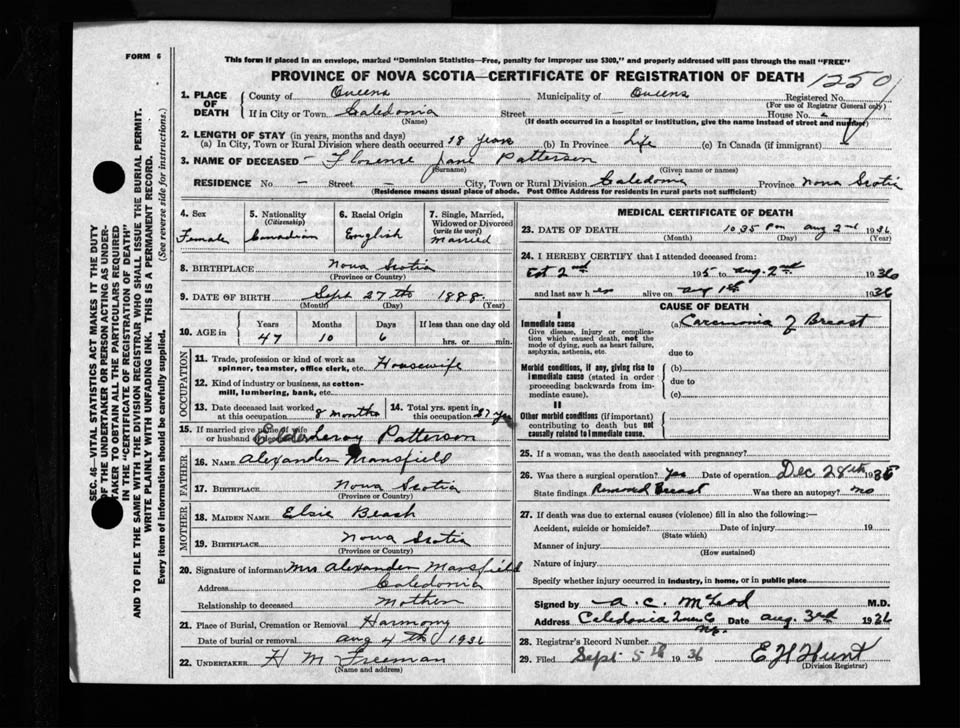 FORM 6
This form if placed in an envelope, marked "Dominion Statistics—Free, penalty for improper use $300," and properly addressed will pass through the mail "FREE"
PROVINCE OF NOVA SCOTIA—CERTIFICATE OF REGISTRATION OF DEATH
1250
1. PLACE OF DEATH
County of Queens Municipality of Queens Registered No.
(For use of Registrar General only)
If in City or Town Caledonia Street House No.
(Name) (If death occurred in a hospital or institution, give the name instead of street and number)
2. LENGTH OF STAY (in years, months and days)
(a) In City, Town or Rural Division where death occurred 18 years (b) In Province Life (c) In Canada (if immigrant)
3. NAME OF DECEASED – Florence Jane Patterson
(Surname) (Given name or names)
RESIDENCE No – Street – City, Town or Rural Division Caledonia Province Nova Scotia
(Residence means usual place of abode. Post Office Address for residents in rural parts not sufficient)
4. Sex
Female
5. Nationality
(Citizenship)
Canadian
6. Racial Origin
English
7. Single, Married, Widowed or Divorced
(write the word)
Married
8. BIRTHPLACE Nova Scotia
(Province or Country)
9. DATE OF BIRTH Sept 27th 1888
(Month) (Day) (Year)
10. AGE in
Years Months Days If less than one day old
47 10 6 hrs. or min.
OCCUPATION
11. Trade, profession or kind of work as
spinner, teamster, office clerk, etc. Housewife
12. Kind of industry or business, as cotton-
mill, lumbering, bank, etc.
13. Date deceased last worked
at this occupation 8 months
14. Total yrs. spent in
this occupation 27 yrs
15. If married give name of wife
or husband Patterson
FATHER
16. NAME Alexander Mansfield
17. BIRTHPLACE Nova Scotia
(Province or Country)
MOTHER
18. MAIDEN NAME Elsie
19. BIRTHPLACE Nova Scotia
(Province or Country)
20. Signature of informant Mrs Alexander Mansfield
Address Caledonia
Relationship to deceased Mother
21. Place of Burial, Cremation or Removal Harmony
Date of burial or removal Aug 4th 1936
22. UNDERTAKER H M Freeman
(Name and address)
MEDICAL CERTIFICATE OF DEATH
23. DATE OF DEATH 10 35 pm Aug 2nd 1936
(Month) (Day) (Year)
24. I HEREBY CERTIFY that I attended deceased from:
2nd 1935 to Aug. 2nd 1936
and last saw her alive on Aug 1st 1936
CAUSE OF DEATH
I
Immediate cause
Give disease, injury or complica-
tion which caused death, not the
mode of dying, such as heart failure,
asphyxia, asthenia, etc.
(a) Carcinoma of Breast
due to
Morbid conditions, if any, giving rise to
immediate cause (stated in order
proceeding backwards from im-
mediate cause).
(b)
due to
(c)
II
Other morbid conditions (if important)
contributing to death but not
causally related to immediate cause.
25. If a woman, was the death associated with pregnancy?
26. Was there a surgical operation? Yes Date of operation Dec 28th 1935
State findings Removed Breast Was there an autopsy? no
27. If death was due to external causes (violence) fill in also the following:—
Accident, suicide or homicide? Date of injury 19
(State which)
Manner of injury
(How sustained)
Nature of injury
Specify whether injury occurred in industry, in home, or in public place
Signed by A. C. McLeod M.D.
Address Caledonia Queens Co N.S. Date Aug. 3rd 1936
28. Registrar's Record Number
29. Filed Sept 5th 1936 E H Hunt
(Division Registrar)
SEC. 46—VITAL STATISTICS ACT MAKES IT THE DUTY
OF THE UNDERTAKER OR PERSON ACTING AS UNDER-
TAKER TO OBTAIN ALL THE PARTICULARS REQUIRED
IN THE "CERTIFICATE OF REGISTRATION OF DEATH"
AND TO FILE THE SAME WITH THE DIVISION REGISTRAR WHO SHALL ISSUE THE BURIAL PERMIT.
WRITE PLAINLY WITH UNFADING INK. THIS IS A PERMANENT RECORD.
Every item of information should be carefully supplied. (See reverse side for instructions.)